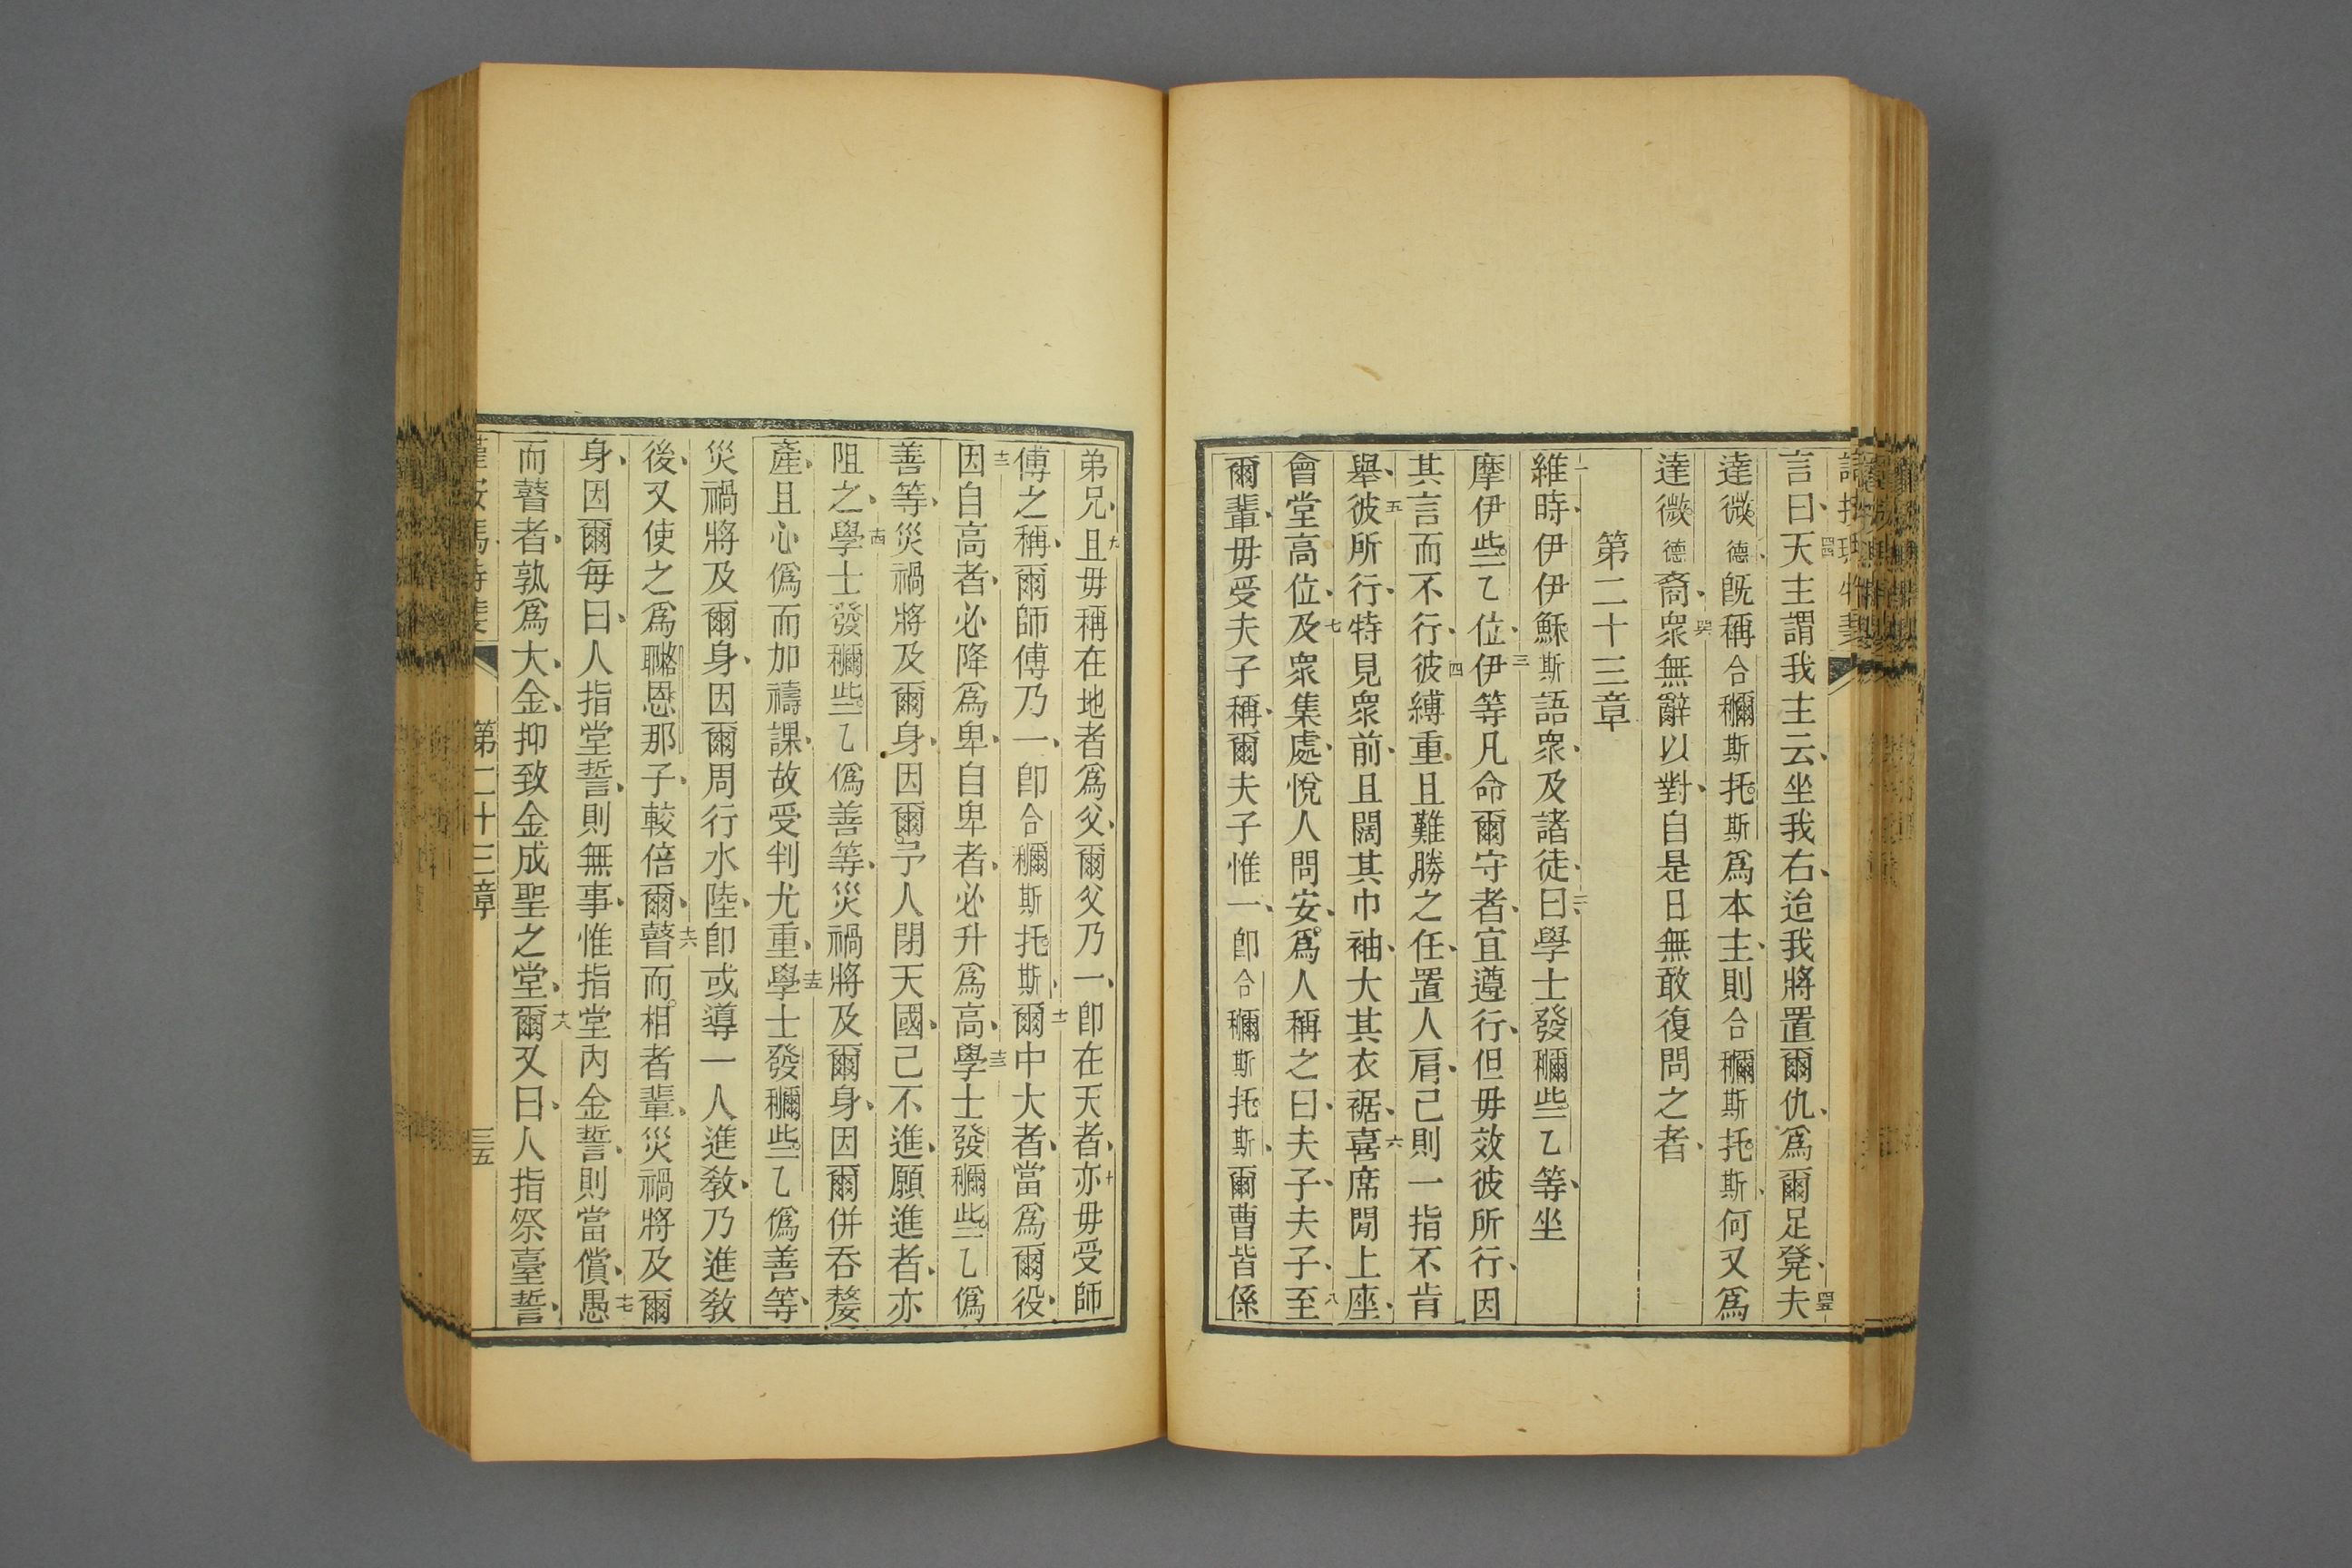 言曰、天主謂我主云、坐我右、迨我將置爾仇、爲爾足凳、夫
達微德、旣稱合穪斯托斯爲本主、則合穪斯托斯、何又爲
達微德裔、衆無辭以對、自是日無敢復問之者、
第二十三章
維時、伊伊穌斯語衆、及諸徒、曰、學士發穪些乙等、坐
摩伊些乙位、伊等凡命爾守者、宜遵行、但毋效彼所行、因
其言而不行、彼縛重且難勝之任、置人肩、己則一指不肯
舉、彼所行、特見衆前、且闊其巾袖、大其衣裾、喜席閒上座、
會堂高位、及衆集處、悅人問安、爲人稱之曰、夫子、夫子、至
爾輩、毋受夫子稱、爾夫子惟一、卽合穪斯托斯、爾曹皆係
弟兄、且毋稱在地者爲父、爾父乃一、卽在天者、亦毋受師
傅之稱、爾師傅乃一、卽合穪斯托斯、爾中大者、當爲爾役、
因自高者、必降爲卑、自卑者、必升爲高、學士發穪些乙僞
善等、災禍將及爾身、因爾予人閉天國、己不進、願進者、亦
阻之、學士發穪些乙僞善等、災禍將及爾身、因爾併吞嫠
產、且心僞而加禱課、故受判尤重、學士發穪些乙僞善等、
災禍將及爾身、因爾周行水陸、卽或導一人進敎、乃進敎
後、又使之爲恩那子、較倍爾、瞽而相者輩、災禍將及爾
身、因爾每曰、人指堂誓、則無事、惟指堂內金誓、則當償、愚
而瞽者、孰爲大、金、抑致金成聖之堂、爾又曰、人指祭臺誓、
第二十三章
三五